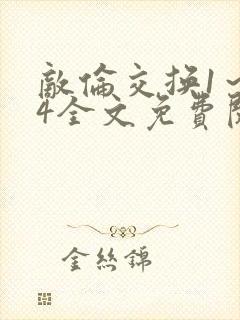 敵倫交换1～
4全文免費閱
金絲錦